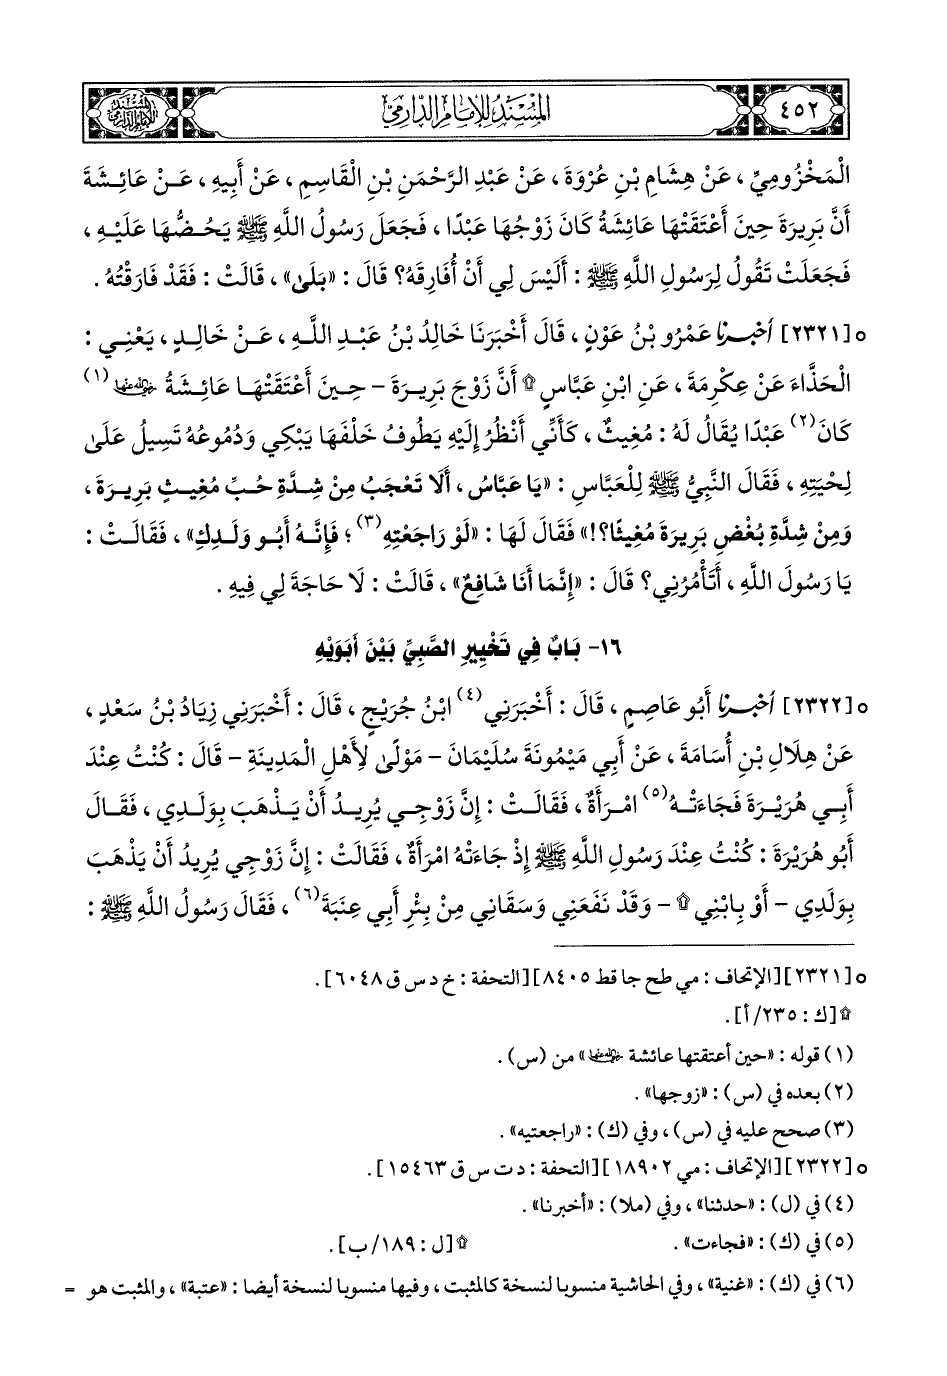 ٤٥٢
المسند للإمام الدارمي
المسند للإمام الدارمي
الْمَخْزُومِيِّ، عَنْ هِشَامِ بْنِ عُرْوَةَ، عَنْ عَبْدِ الرَّحْمَنِ بْنِ الْقَاسِمِ، عَنْ أَبِيهِ، عَنْ عَائِشَةَ
أَنَّ بَرِيرَةَ حِينَ أَعْتَقَتْهَا عَائِشَةُ كَانَ زَوْجُهَا عَبْدًا، فَجَعَلَ رَسُولُ اللَّهِ ﷺ يَحُضُّهَا عَلَيْهِ،
فَجَعَلَتْ تَقُولُ لِرَسُولِ اللَّهِ ﷺ: أَلَيْسَ لِي أَنْ أُفَارِقَهُ؟ قَالَ: «بَلَى»، قَالَتْ: فَقَدْ فَارَقْتُهُ.
○ [٢٣٢١] أخبرنا عَمْرُو بْنُ عَوْنٍ، قَالَ أَخْبَرَنَا خَالِدُ بْنُ عَبْدِ اللَّهِ، عَنْ خَالِدٍ، يَعْنِي:
الْحَذَّاءَ عَنْ عِكْرِمَةَ، عَنِ ابْنِ عَبَّاسٍ ۩ أَنَّ زَوْجَ بَرِيرَةَ - حِينَ أَعْتَقَتْهَا عَائِشَةُ رضي الله عنها (١)
كَانَ (٢) عَبْدًا يُقَالُ لَهُ: مُغِيثٌ، كَأَنِّي أَنْظُرُ إِلَيْهِ يَطُوفُ خَلْفَهَا يَبْكِي وَدُمُوعُهُ تَسِيلُ عَلَى
لِحْيَتِهِ، فَقَالَ النَّبِيُّ ﷺ لِلْعَبَّاسِ: «يَا عَبَّاسُ، أَلَا تَعْجَبُ مِنْ شِدَّةِ حُبِّ مُغِيثٍ بَرِيرَةَ،
وَمِنْ شِدَّةِ بُغْضِ بَرِيرَةَ مُغِيثًا؟!» فَقَالَ لَهَا: «لَوْ رَاجَعْتِهِ (٣)؛ فَإِنَّهُ أَبُو وَلَدِكِ»، فَقَالَتْ:
يَا رَسُولَ اللَّهِ، أَتَأْمُرُنِي؟ قَالَ: «إِنَّمَا أَنَا شَافِعٌ»، قَالَتْ: لَا حَاجَةَ لِي فِيهِ.
١٦- بَابٌ فِي تَخْيِيرِ الصَّبِيِّ بَيْنَ أَبَوَيْهِ
○ [٢٣٢٢] أخبرنا أَبُو عَاصِمٍ، قَالَ: أَخْبَرَنِي (٤) ابْنُ جُرَيْجٍ، قَالَ: أَخْبَرَنِي زِيَادُ بْنُ سَعْدٍ،
عَنْ هِلَالِ بْنِ أُسَامَةَ، عَنْ أَبِي مَيْمُونَةَ سُلَيْمَانَ - مَوْلًى لِأَهْلِ الْمَدِينَةِ - قَالَ: كُنْتُ عِنْدَ
أَبِي هُرَيْرَةَ فَجَاءَتْهُ (٥) امْرَأَةٌ، فَقَالَتْ: إِنَّ زَوْجِي يُرِيدُ أَنْ يَذْهَبَ بِوَلَدِي، فَقَالَ
أَبُو هُرَيْرَةَ: كُنْتُ عِنْدَ رَسُولِ اللَّهِ ﷺ إِذْ جَاءَتْهُ امْرَأَةٌ، فَقَالَتْ: إِنَّ زَوْجِي يُرِيدُ أَنْ يَذْهَبَ
بِوَلَدِي - أَوْ بِابْنِي ۩ - وَقَدْ نَفَعَنِي وَسَقَانِي مِنْ بِئْرِ أَبِي عِنَبَةَ (٦)، فَقَالَ رَسُولُ اللَّهِ ﷺ:
○ [٢٣٢١] [الإتحاف: مي طح جا قط ٨٤٠٥] [التحفة: خ د س ق ٦٠٤٨].
۩ [ك: ٢٣٥/أ].
(١) قوله: «حين أعتقتها عائشة رضي الله عنها» من (س).
(٢) بعده في (س): «زوجها».
(٣) صحح عليه في (س)، وفي (ك): «راجعتيه».
○ [٢٣٢٢] [الإتحاف: مي ١٨٩٠٢] [التحفة: د ت س ق ١٥٤٦٣].
(٤) في (ل): «حدثنا»، وفي (ملا): «أخبرنا».
(٥) في (ك): «فجاءت». ۩ [ل: ١٨٩/ب].
(٦) في (ك): «غنية»، وفي الحاشية منسوبا لنسخة كالمثبت، وفيها منسوبا لنسخة أيضا: «عتبة»، والمثبت هو =